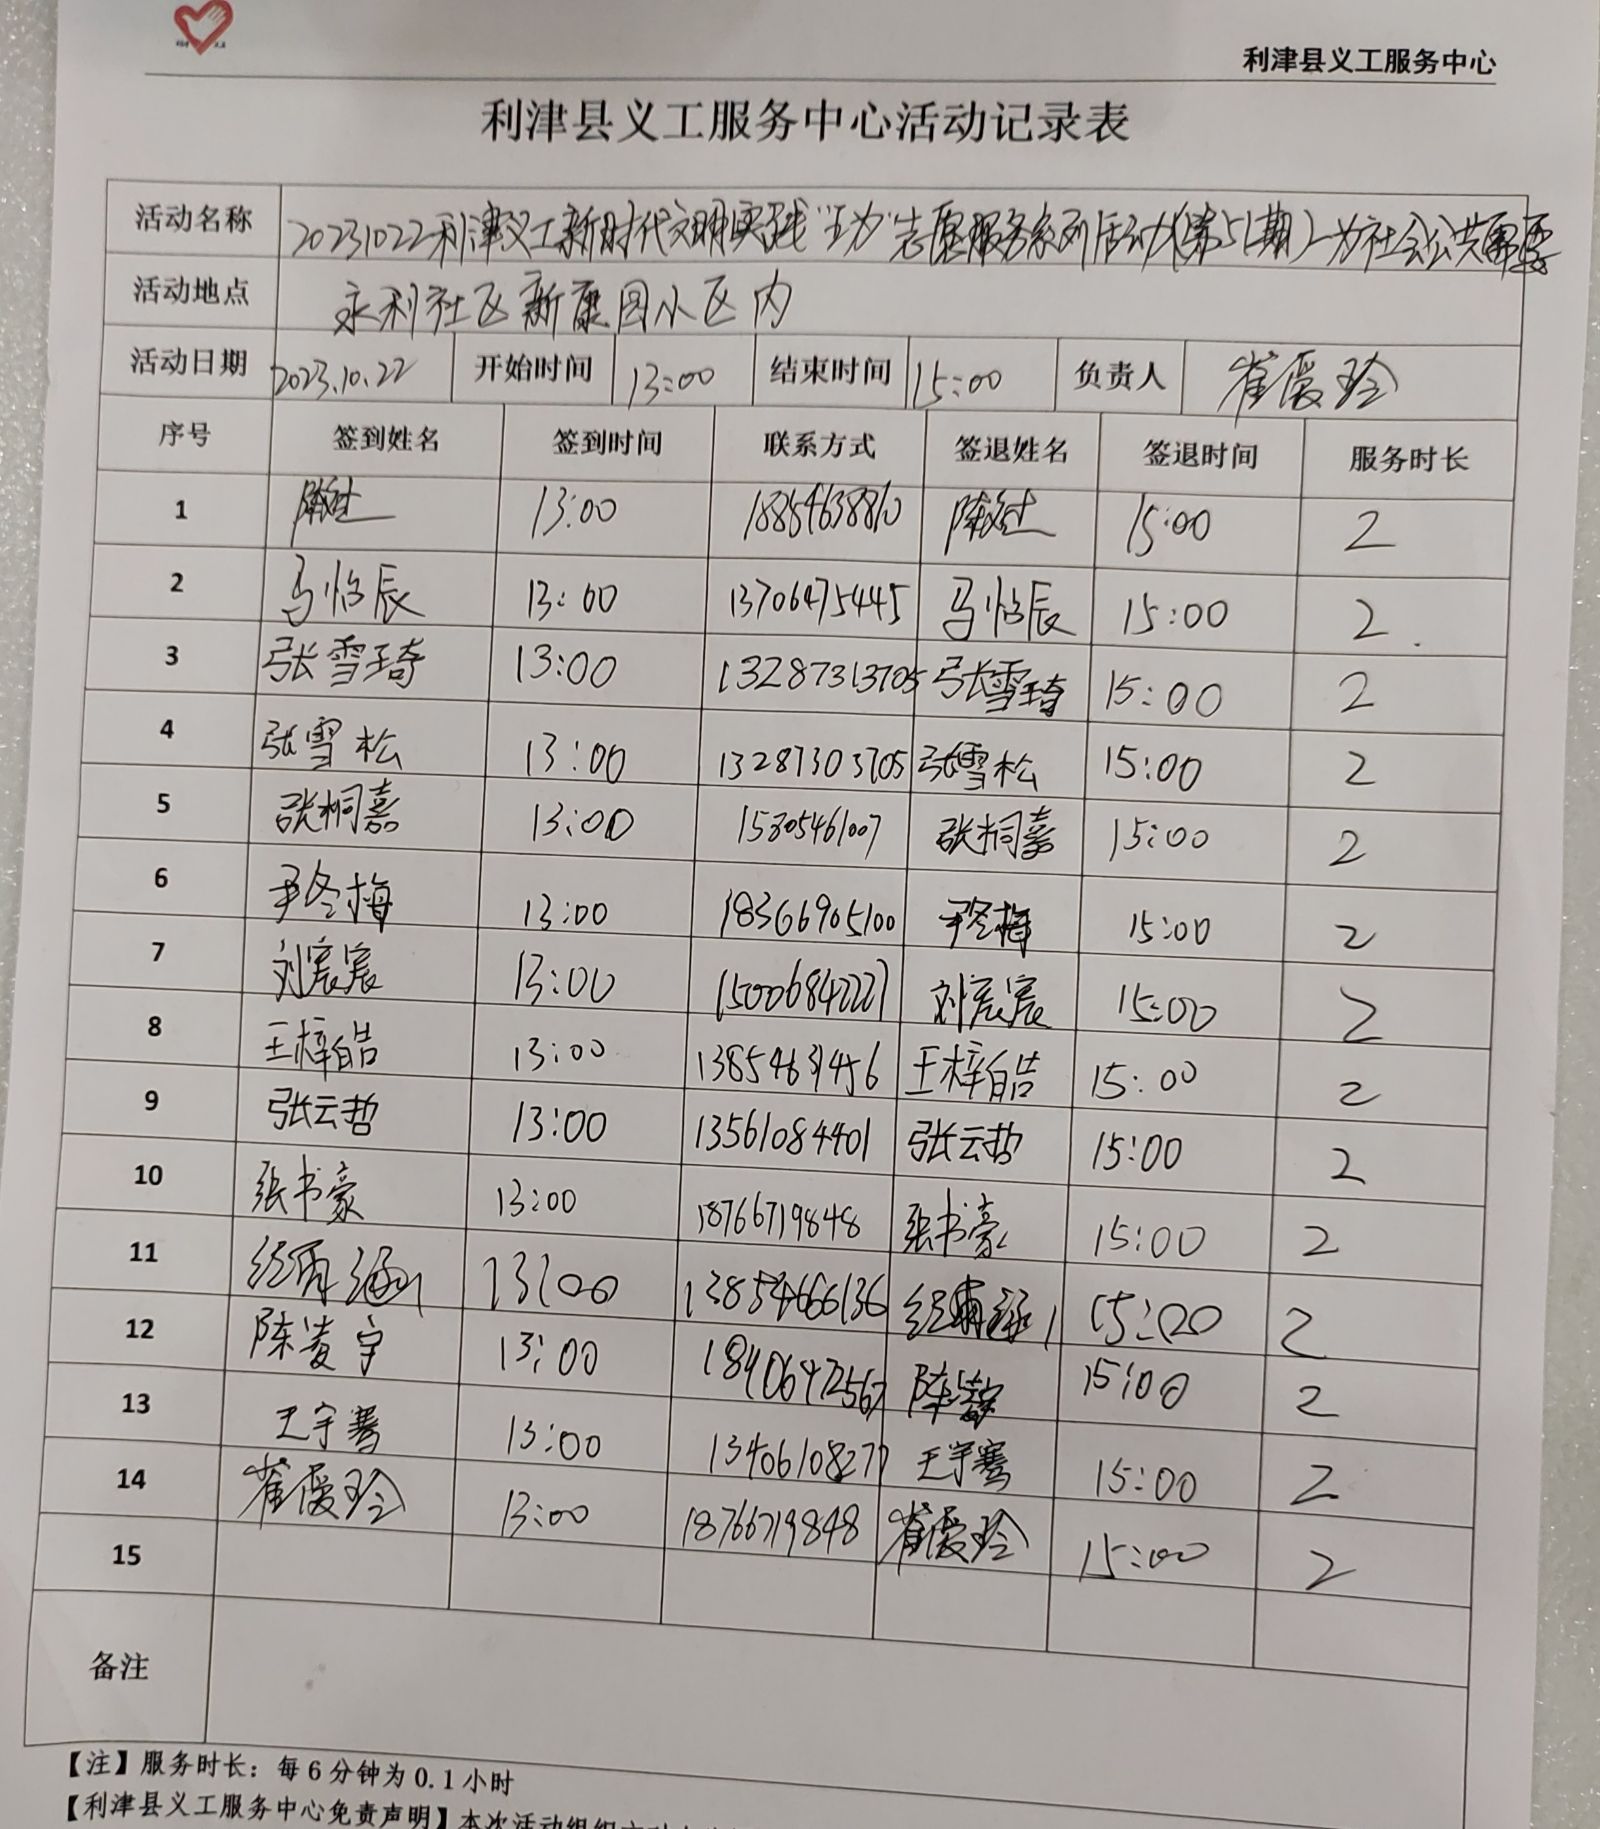 利津县义工服务中心
利津县义工服务中心活动记录表
活动名称 20231022利津义工新时代文明实践"五为"志愿服务系列活动(第51期)-为社会公共需要
活动地点 永利社区新康园小区内
活动日期 2023.10.22 开始时间 13:00 结束时间 15:00 负责人 崔爱玲
序号 签到姓名 签到时间 联系方式 签退姓名 签退时间 服务时长
1 13:00 18854638810 15:00 2
2 马怡辰 13:00 13706475445 马怡辰 15:00 2
3 张雪琦 13:00 13287313705 张雪琦 15:00 2
4 张雪松 13:00 13287303705 张雪松 15:00 2
5 张桐嘉 13:00 15805461007 张桐嘉 15:00 2
6 尹冬梅 13:00 18366905100 尹冬梅 15:00 2
7 刘宸宸 13:00 15006842221 刘宸宸 15:00 2
8 王梓皓 13:00 王梓皓 15:00 2
9 张云哲 13:00 13561084401 张云哲 15:00 2
10 张书豪 13:00 18766719848 张书豪 15:00 2
11 纪雨涵 13:00 13854666136 纪雨涵 15:00 2
12 陈凌宇 13:00 陈凌宇 15:00 2
13 王宇骞 13:00 13406108277 王宇骞 15:00 2
14 崔爱玲 13:00 18766719848 崔爱玲 15:00 2
15
备注
【注】服务时长：每6分钟为0.1小时
【利津县义工服务中心免责声明】本次活动组织